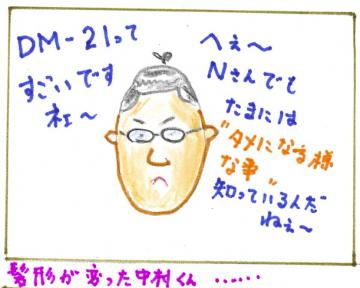 DM-21って
すごいです
ネェ〜
へぇ〜
Nさんでも
たまには
"タメになる様
な事"
知っているんだ
ねぇ〜
髪形が変った中村くん ……